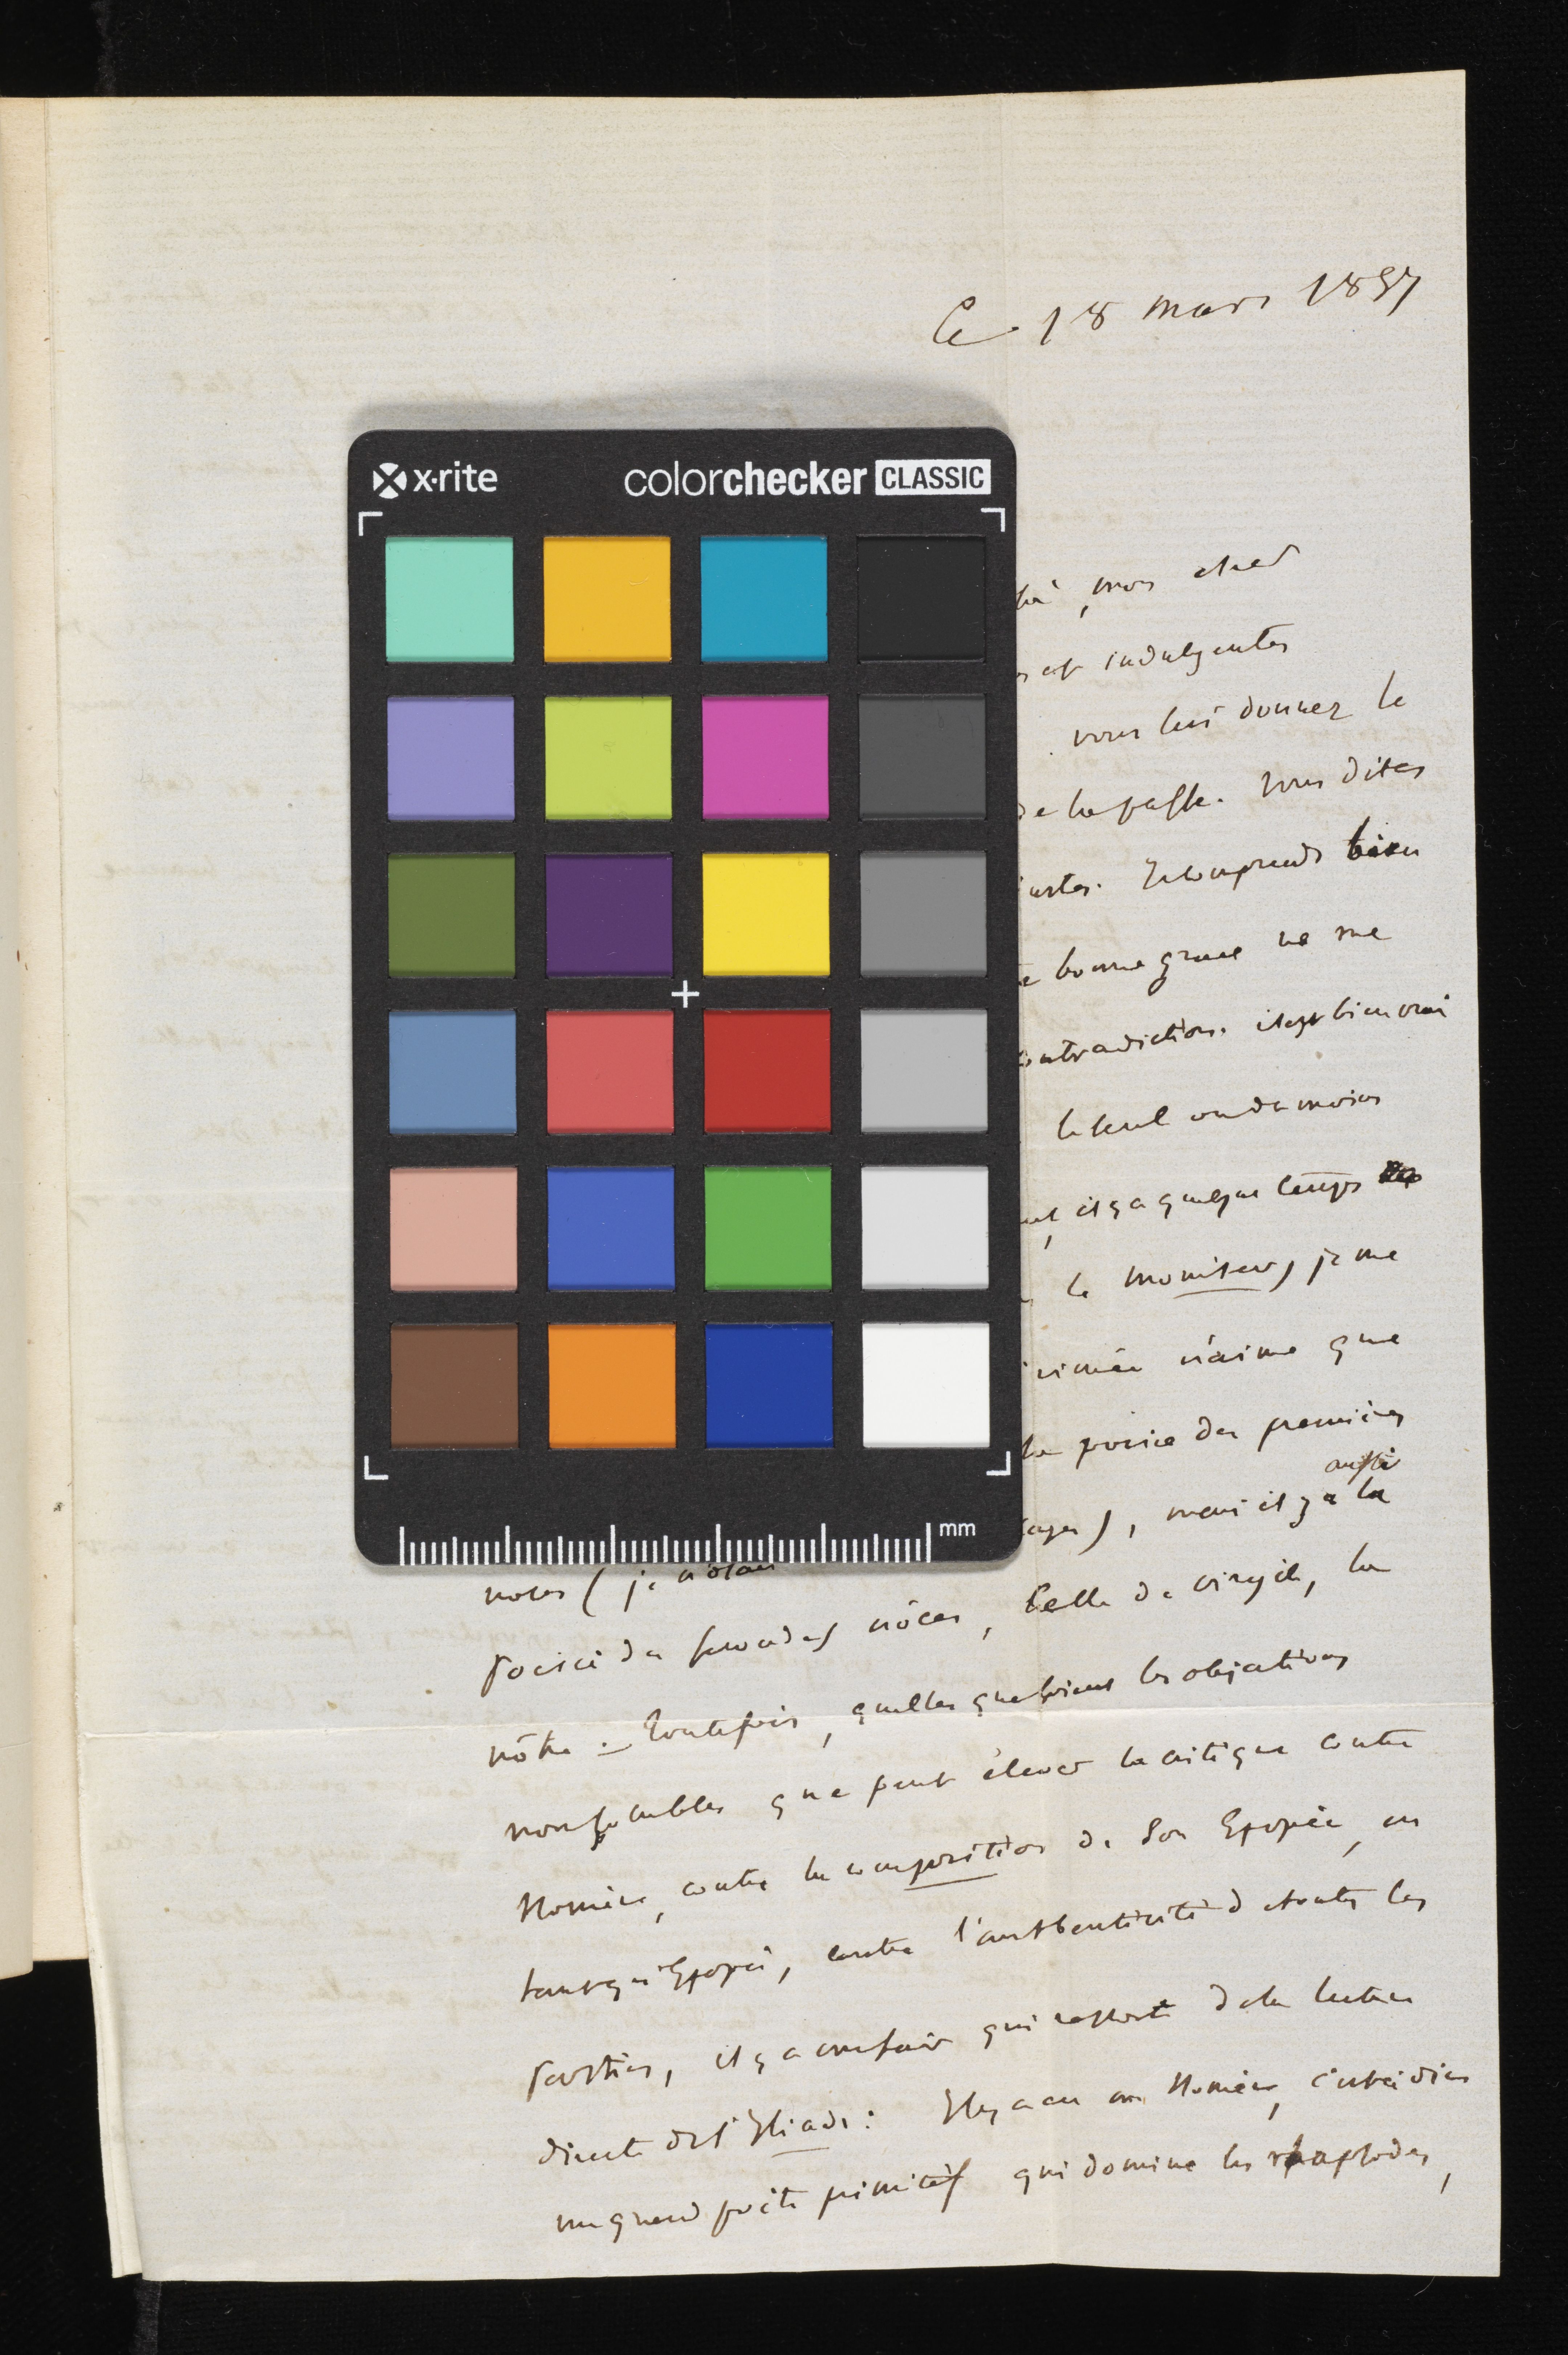 Ce 18 mars 1857
x·rite colorchecker CLASSIC
mon cher
et indulgentes
vous lui donnez le
de la passe. Vous dites
justes. Je comprends bien
bonne grace ne me
contradiction. il est bien vrai
le seul ou du moins
il y a quelque temps
le Moniteur) je me
n'aime que
la poesie des premières
aussi
mais il y a la
mm
noces (je
poésie des secondes nôces, celle de Virgile, la
nôtre. — Toutefois, quelles que soient les objections
que peut élever la critique contre
Homère, contre la composition de son Epopée, en
tant qu'Epopée, contre l'authenticité de toutes les
parties, il y a un fait qui ressort de la lecture
directe de l'Iliade : Il y a eu un Homère, c'est à dire
un grand poète primitif qui domine les rhapsodes,